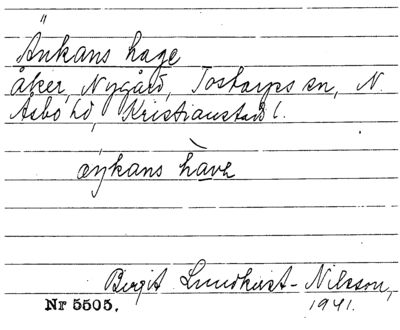 Änkans hage
åker, Nygård, Tostarps sn, N.
Åsbo hd, Kristianstads l.
æŋkans hàvə
Birgit Lundkvist-Nilsson,
Nr 5505.
1941.